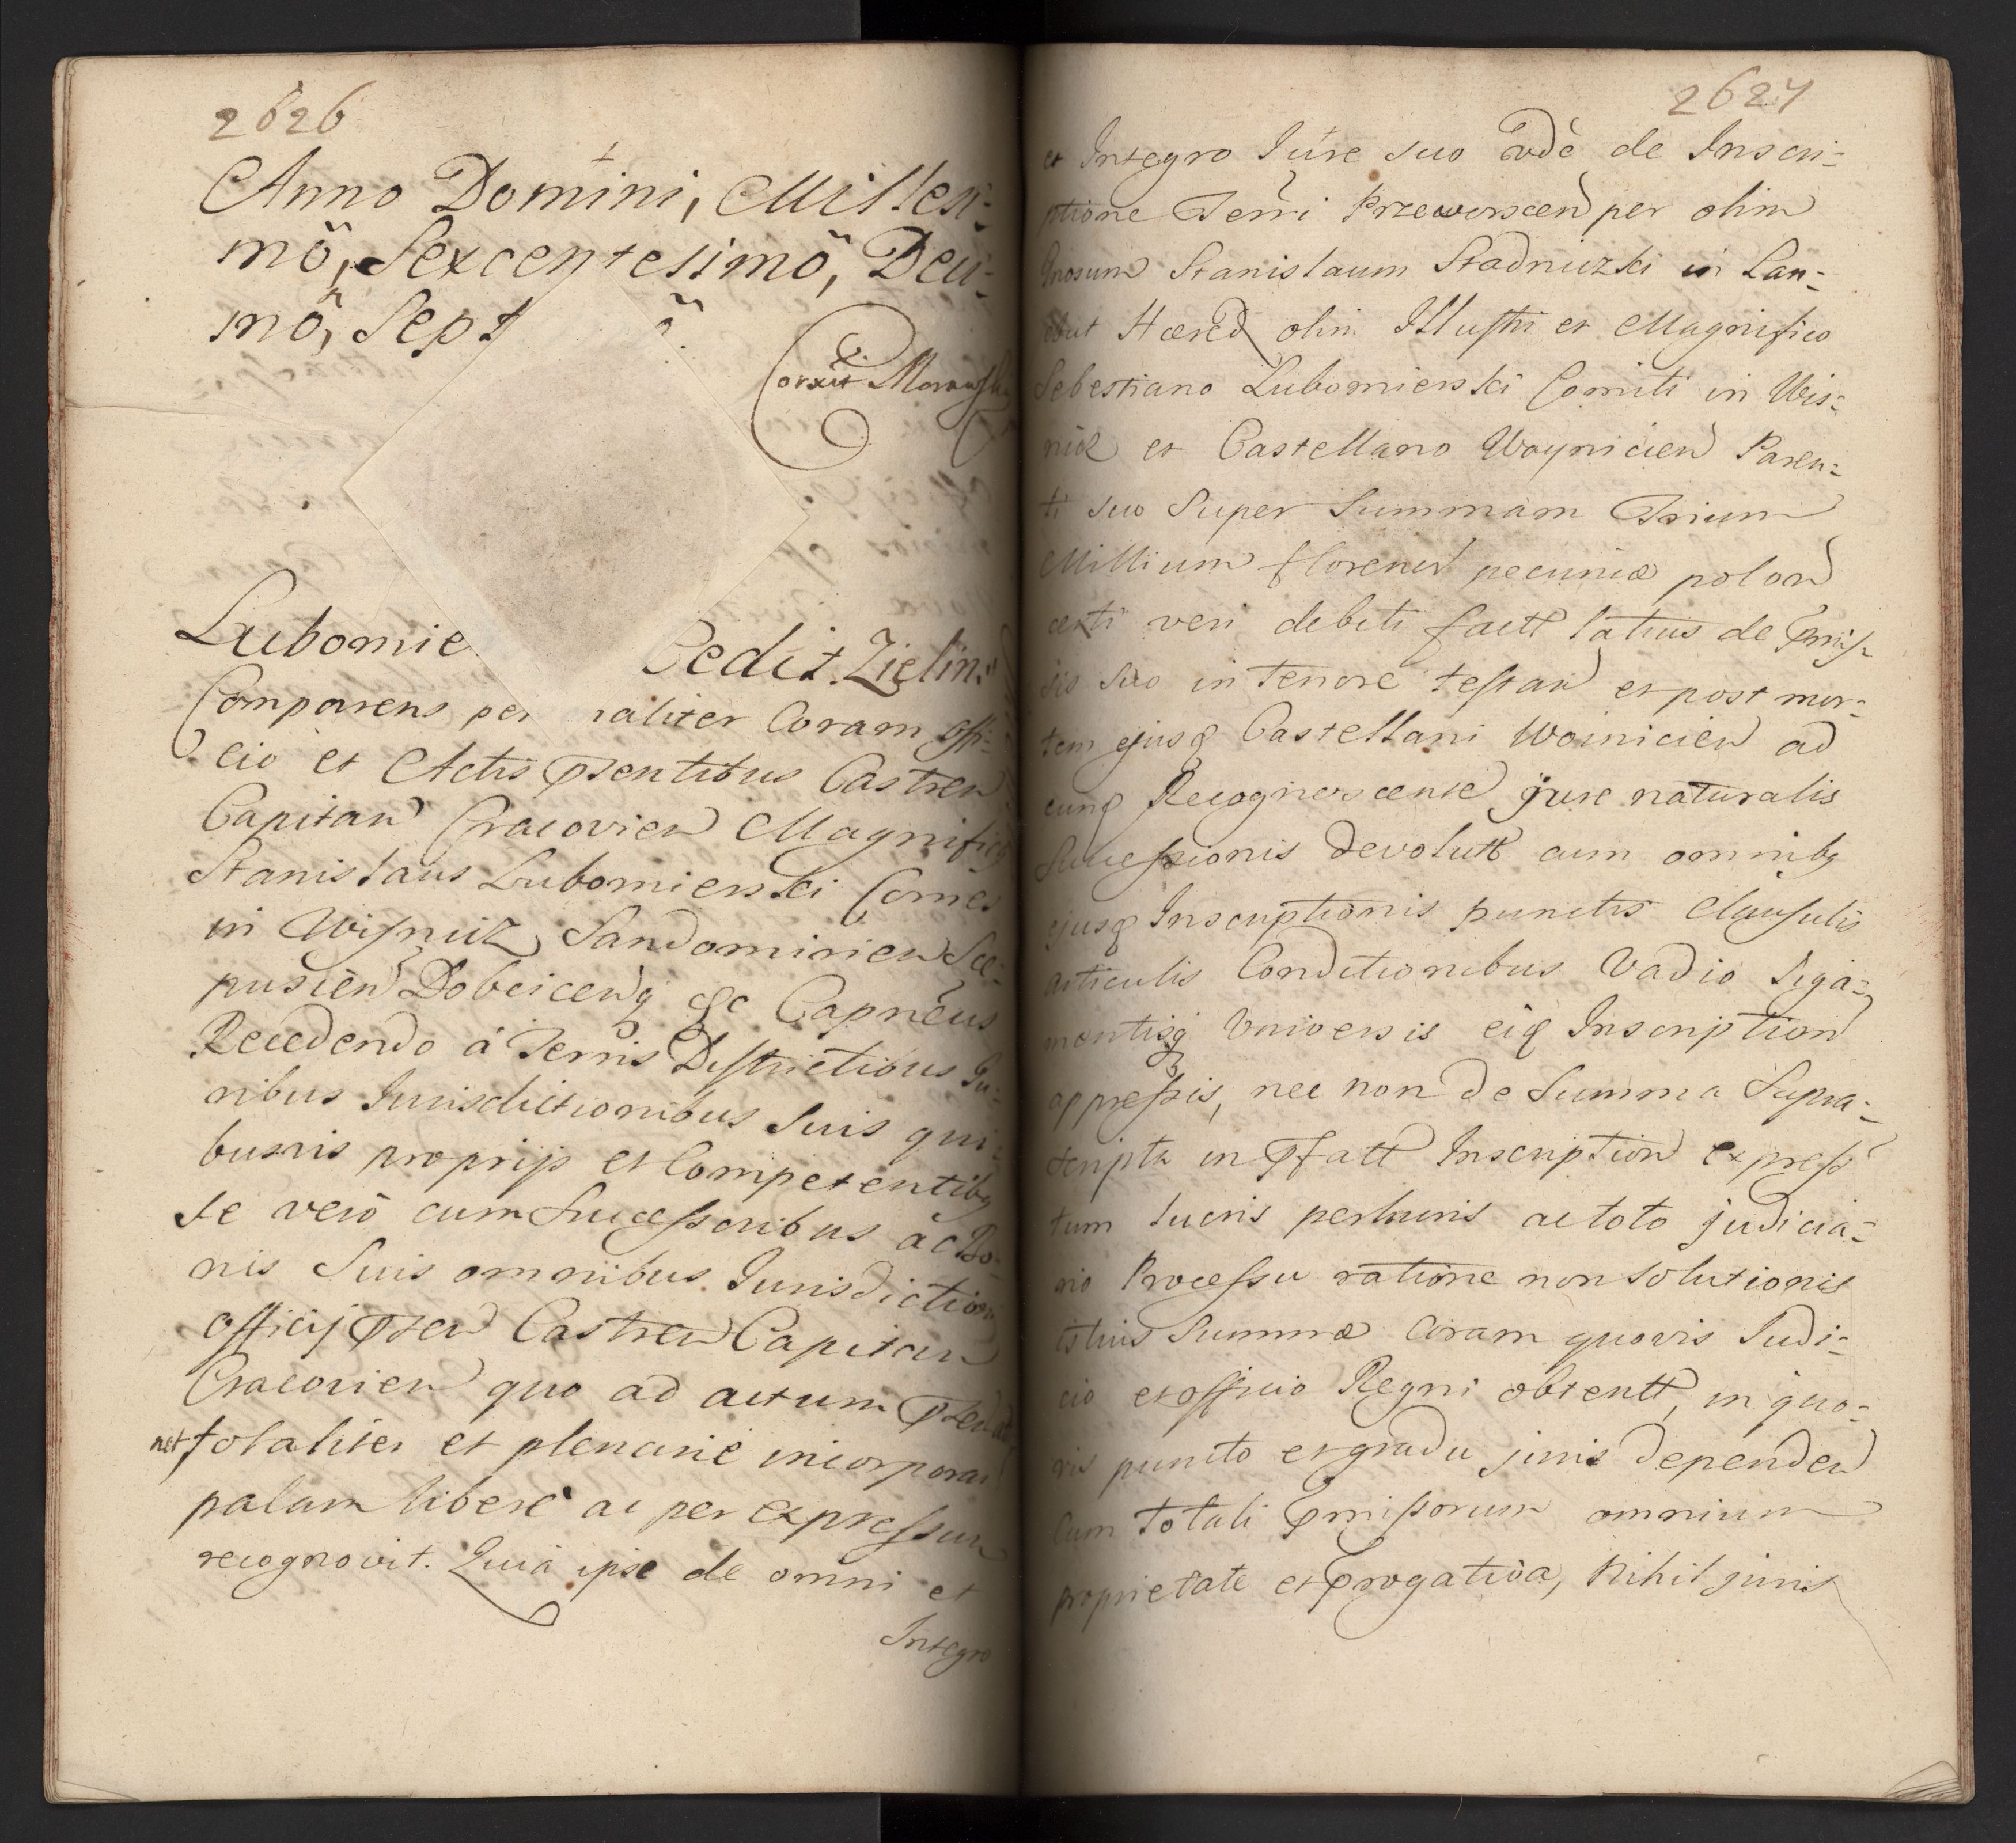 2626
Anno Domini, Millesi-
mõ, Sexcentesimõ, Deci-
mõ, Sept
Corxit
Lubomie Cedit Zielin:
Comparens per naliter Coram offi-
cio et Actis Pntibus Castren
Capitan Cracovien Magnificus
Stanislaus Lubomierski Comes
in Wisnicz, Sandomirien Sce-
pusien Dobcicenq &c Capneus
Recedendo á Terris Districtibus Iu-
ribus Iurisdictionibus Suis qui-
busvis proprijs et Competentibq
se verò cum Successoribus ac Bo-
nis Suis omnibus Iurisdictioni
officij Pnten Castren Capitan
Cracovien quo ad actum
totaliter et plenariè incorporan
palam liberè ac per expressum
recognovit. Quia ipse de omni et
Integro
2627
et Integro Iure suo de Inscri-
ptione Terri Przeworscen per olim
Gnosum Stanislaum Stadniczki in Lan-
cut Hæred olim Illustri et Magnifico
Sebestiano Lubomierski Comiti in Wis-
nicz et Castellano Woynicien Paren-
ti suo Super Summam Trium
Millium florenor pecuniæ polon
certi veri debiti factt latius de Pmis-
sis suo in tenore testan et post mor-
tem ejusq Castellani Woinicien ad
eunq Recognoscente jure naturalis
Successionis devolutt cum omnibq
ejusq Inscriptionis punctis Clausulis
articulis Conditionibus Vadio Liga-
mentisq Universis eiq Inscription
appressis, nec non de Summa Supra-
scripta in Pfatt Inscription express
tum lucris perlucris ac toto judicia-
rio Processu ratione non solutionis
istius Summæ Coram quovis Iudi-
cio et officio Regni obtentt, in quo-
vis puncto et gradu juris dependen
Cum totali Pmissorum omnium
proprietate et Progativa, Nihil juris